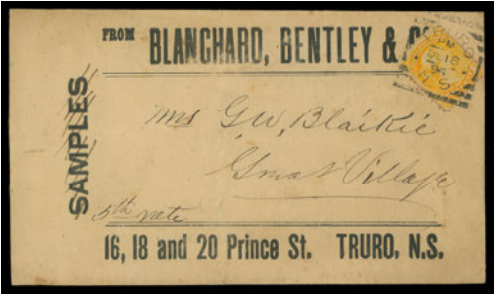 FROM BLANCHARD, BENTLEY & Co
SAMPLES
Mrs G.W. Blaikie
Great Village
5th rate
16, 18 and 20 Prince St. TRURO, N.S.
TRURO
PM
18
N.S.